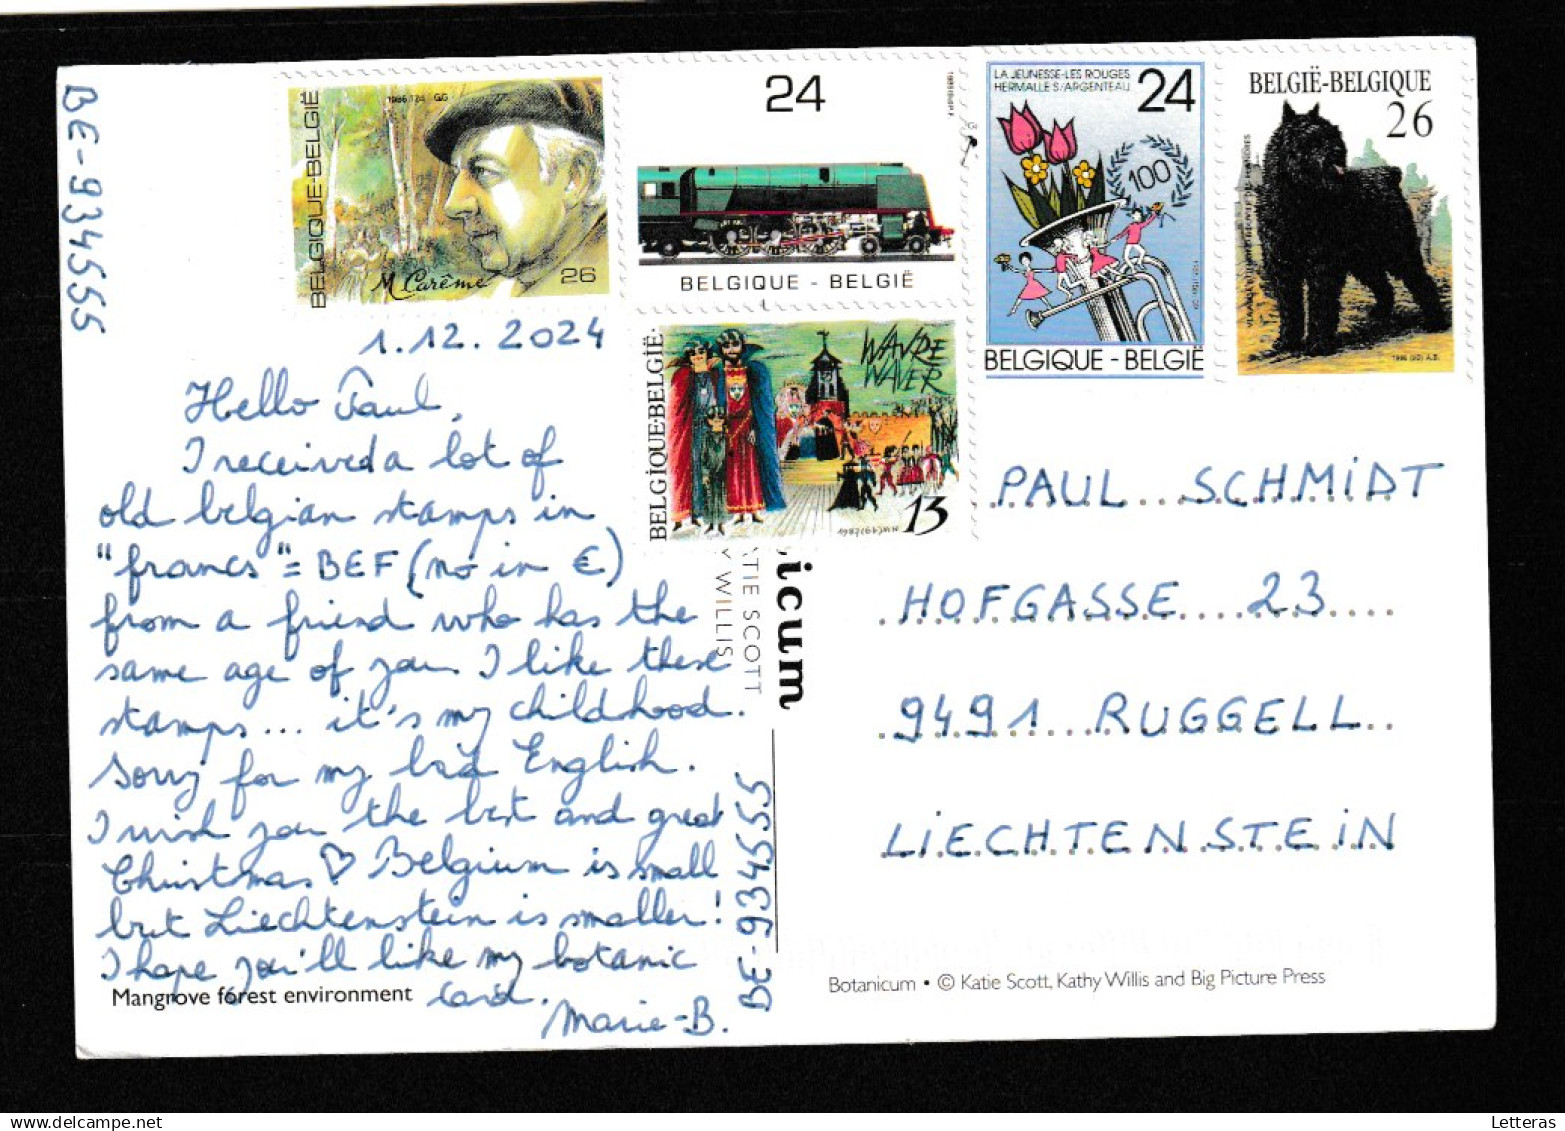 BE-934555
BELGIQUE·BELGIË
1996/12A GG
M Carême
26
24
BELGIQUE - BELGIË
LA JEUNESSE-LES ROUGES
HERMALLE S/ARGENTEAU
24
100
BELGIQUE - BELGIË
BELGIË-BELGIQUE
26
1986 (20) A.B.
BELGIQUE·BELGIË
WAVRE
WAVER
13
1.12.2024
Hello Paul,
I received a lot of
old belgian stamps in
"francs" = BEF (no in €)
from a friend who has the
same age of you. I like these
stamps... it's my childhood.
Sorry for my bad English.
I wish you the best and great
Christmas ♡ Belgium is small
but Liechtenstein is smaller!
I hope you'll like my botanic
card.
Marie-B.
Mangrove forest environment
BE-934555
icum
TIE SCOTT
Y WILLIS
PAUL SCHMIDT
HOFGASSE 23
9491 RUGGELL
LIECHTENSTEIN
Botanicum • © Katie Scott, Kathy Willis and Big Picture Press
Letteras